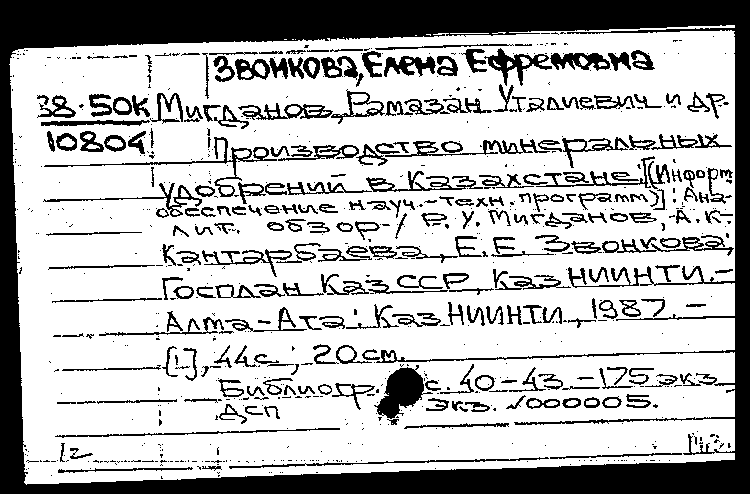 Звонкова, Елена Ефремовна
38.50К Мигданов, Рамазан Уталиевич и др.
10804 Производство минеральных
удобрений в Казахстане: [(Информ.
обеспечение науч.-техн. программ)]: Ана-
лит. обзор / Р. У. Мигданов, А. К.
Кантарбаева, Е. Е. Звонкова;
Госплан КазССР, КазНИИНТИ. -
Алма-Ата: КазНИИНТИ, 1987. -
[1], 44 с.; 20 см.
Библиогр. с. 40-43. - 175 экз
ДСП экз. №000005.